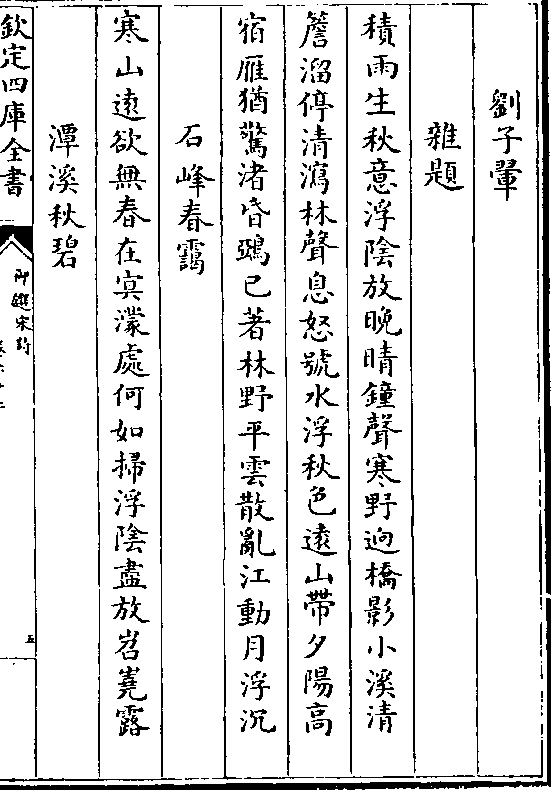 劉子翬
雜題
積雨生秋意浮陰放晚晴鐘聲寒野逈橋影小溪清
簷溜停清瀉林聲息怒號水浮秋色遠山帶夕陽高
宿雁猶驚渚昏鵶已著林野平雲散亂江動月浮沉
石峰春靄
寒山遠欲無春在冥濛處何如掃浮陰盡放岧嶤露
潭溪秋碧
欽定四庫全書
御選宋詩
五